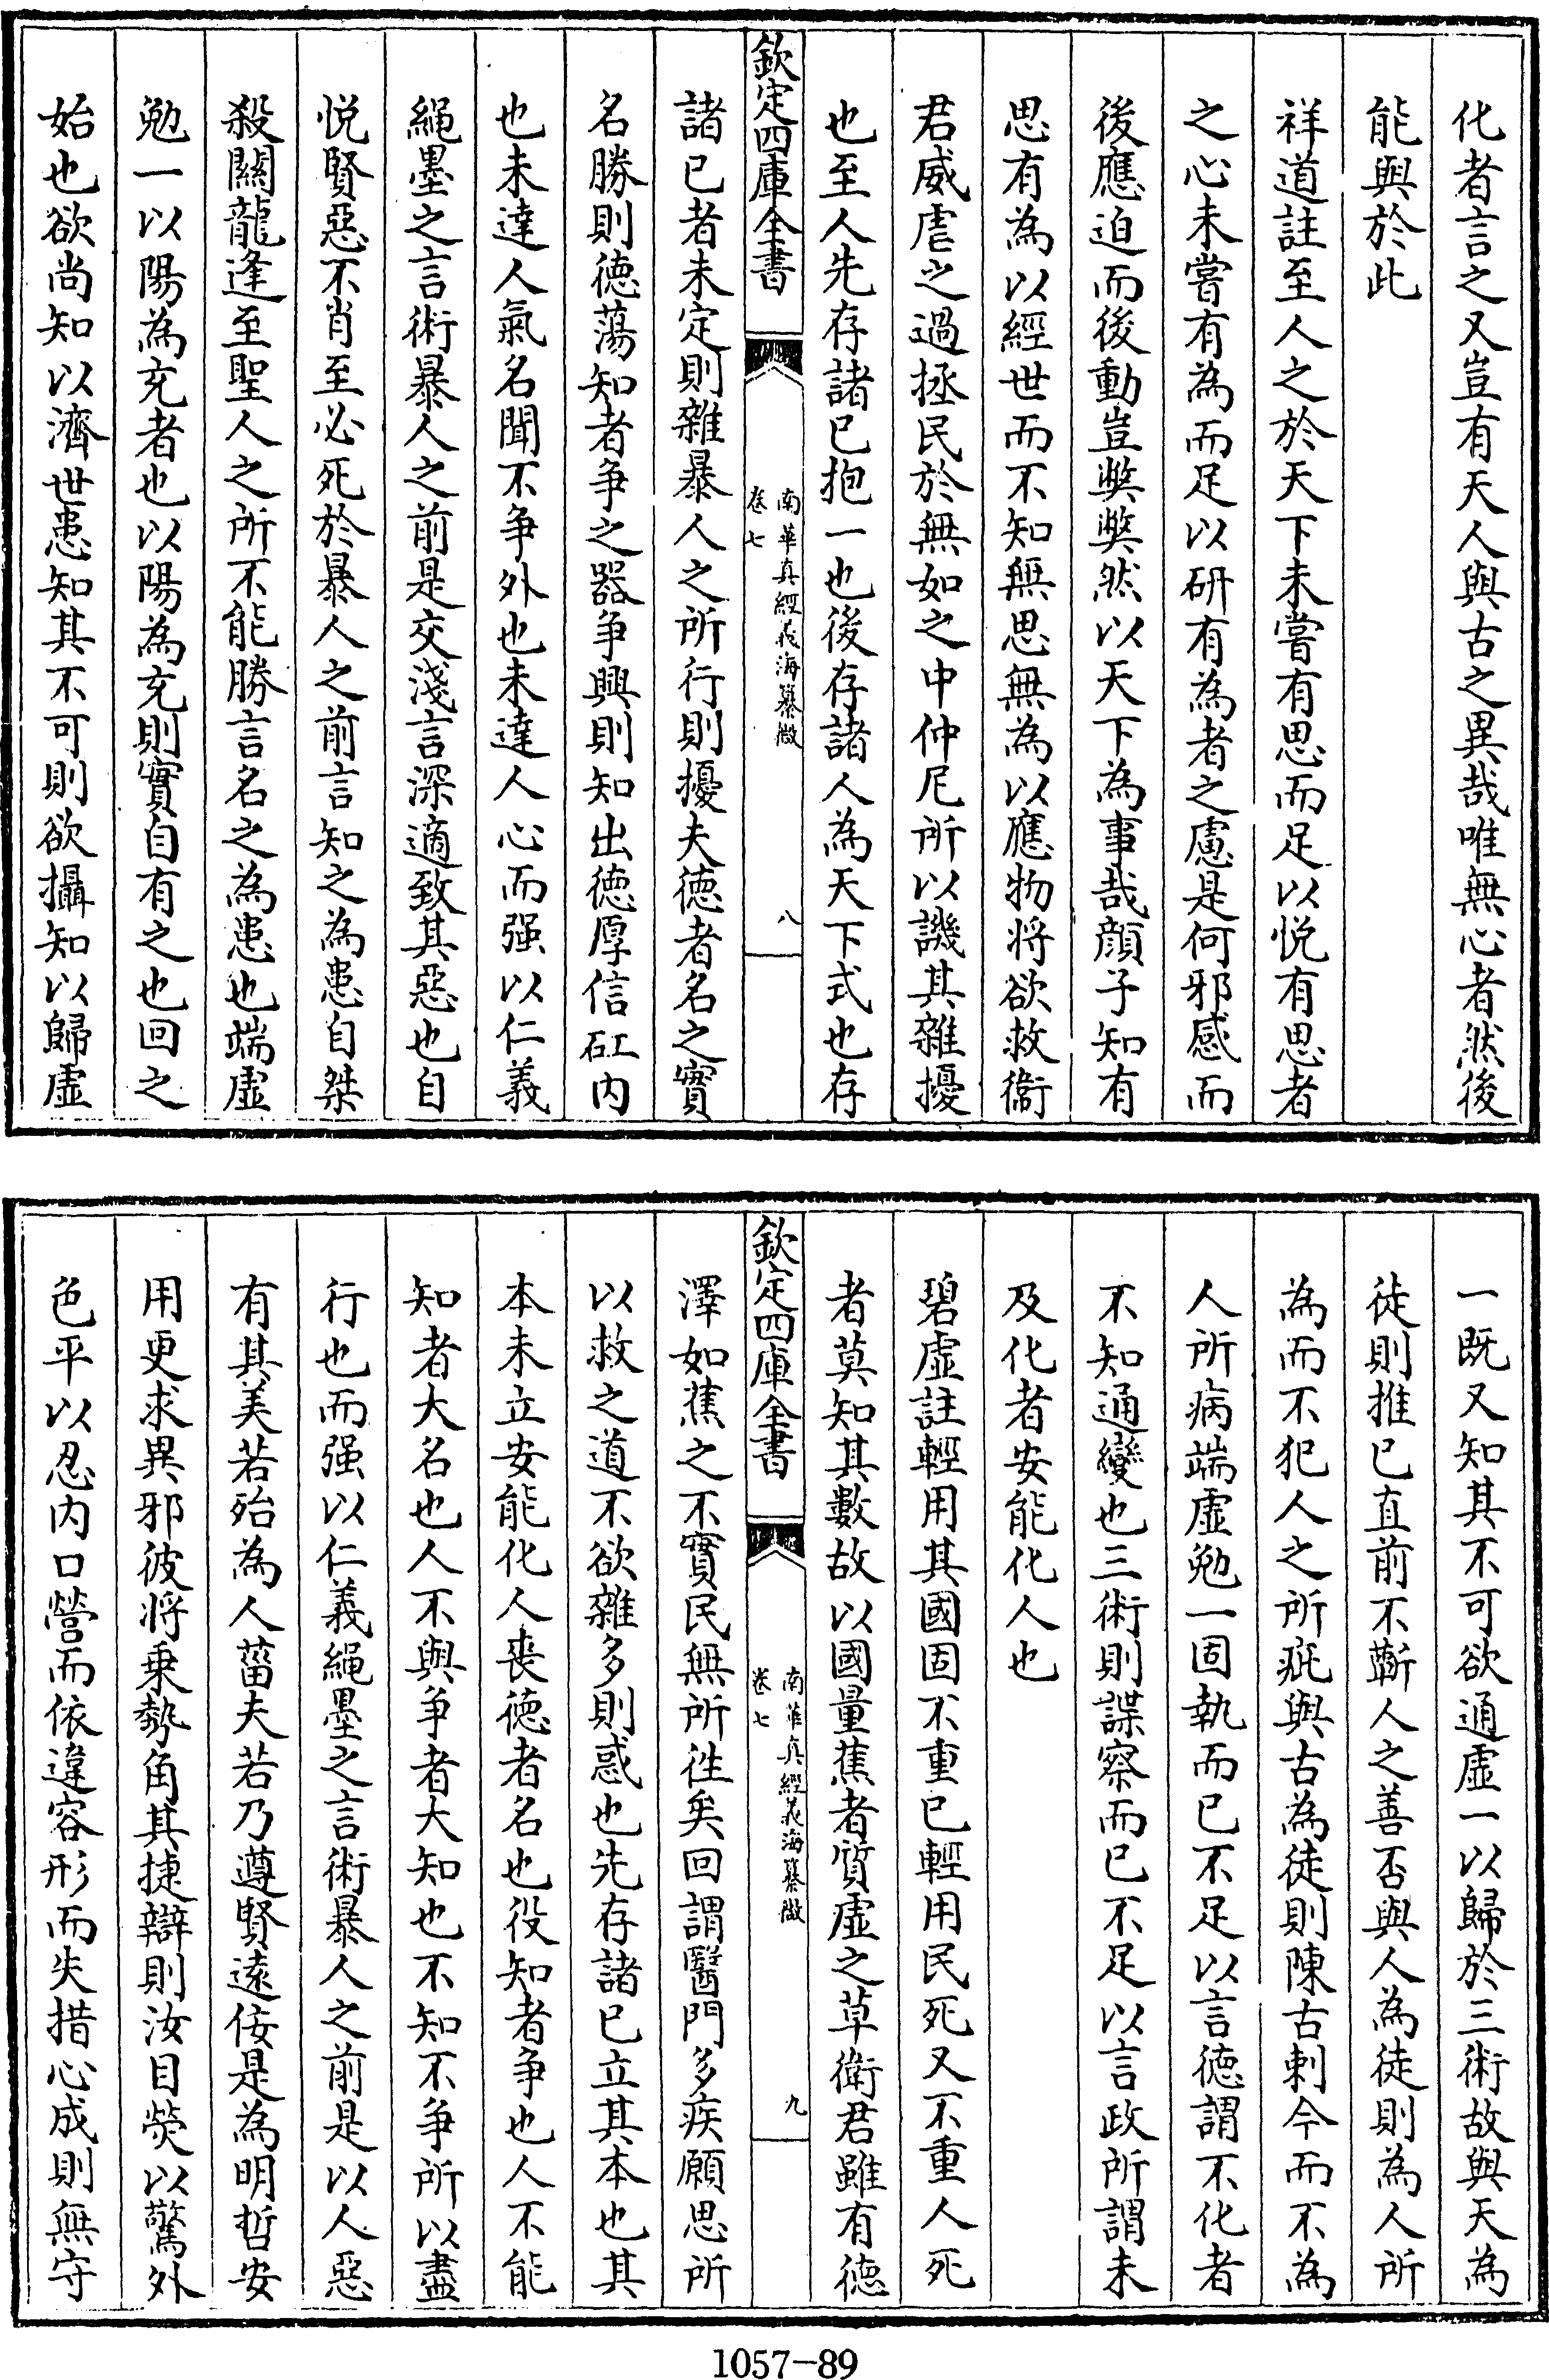 化者言之又豈有天人與古之異哉唯無心者然後
能與於此
祥道註至人之於天下未嘗有思而足以悦有思者
之心未嘗有為而足以研有為者之慮是何邪感而
後應迫而後動豈弊弊然以天下為事哉顔子知有
思有為以經世而不知無思無為以應物将欲救衞
君威虐之過拯民於無如之中仲尼所以譏其雜擾
也至人先存諸已抱一也後存諸人為天下式也存
欽定四庫全書
南華真經義海纂微
卷七
八
諸已者未定則雜暴人之所行則擾夫徳者名之實
名勝則徳蕩知者争之器争興則知出徳厚信矼内
也未達人氣名聞不争外也未達人心而强以仁義
繩墨之言術暴人之前是交淺言深適致其惡也自
悦賢惡不肖至必死於暴人之前言知之為患自桀
殺關龍逢至聖人之所不能勝言名之為患也端虚
勉一以陽為充者也以陽為充則實自有之也回之
始也欲尚知以濟世患知其不可則欲攝知以歸虚
一既又知其不可欲通虚一以歸於三術故與天為
徒則推已直前不蘄人之善否與人為徒則為人所
為而不犯人之所疵與古為徒則陳古刺今而不為
人所病端虚勉一固執而已不足以言徳謂不化者
不知通變也三術則諜察而已不足以言政所謂未
及化者安能化人也
碧虚註輕用其國固不重已輕用民死又不重人死
者莫知其數故以國量蕉者質虚之草衛君雖有徳
欽定四庫全書
南華真經義海纂微
卷七
九
澤如蕉之不實民無所往矣回謂醫門多疾願思所
以救之道不欲雜多則惑也先存諸已立其本也其
本未立安能化人喪徳者名也役知者争也人不能
知者大名也人不與争者大知也不知不争所以盡
行也而强以仁義繩墨之言術暴人之前是以人惡
有其美若殆為人菑夫若乃遵賢逺佞是為明哲安
用更求異邪彼将乗勢角其捷辯則汝目熒以驚外
色平以忍内口營而依違容形而失措心成則無守
1057-89